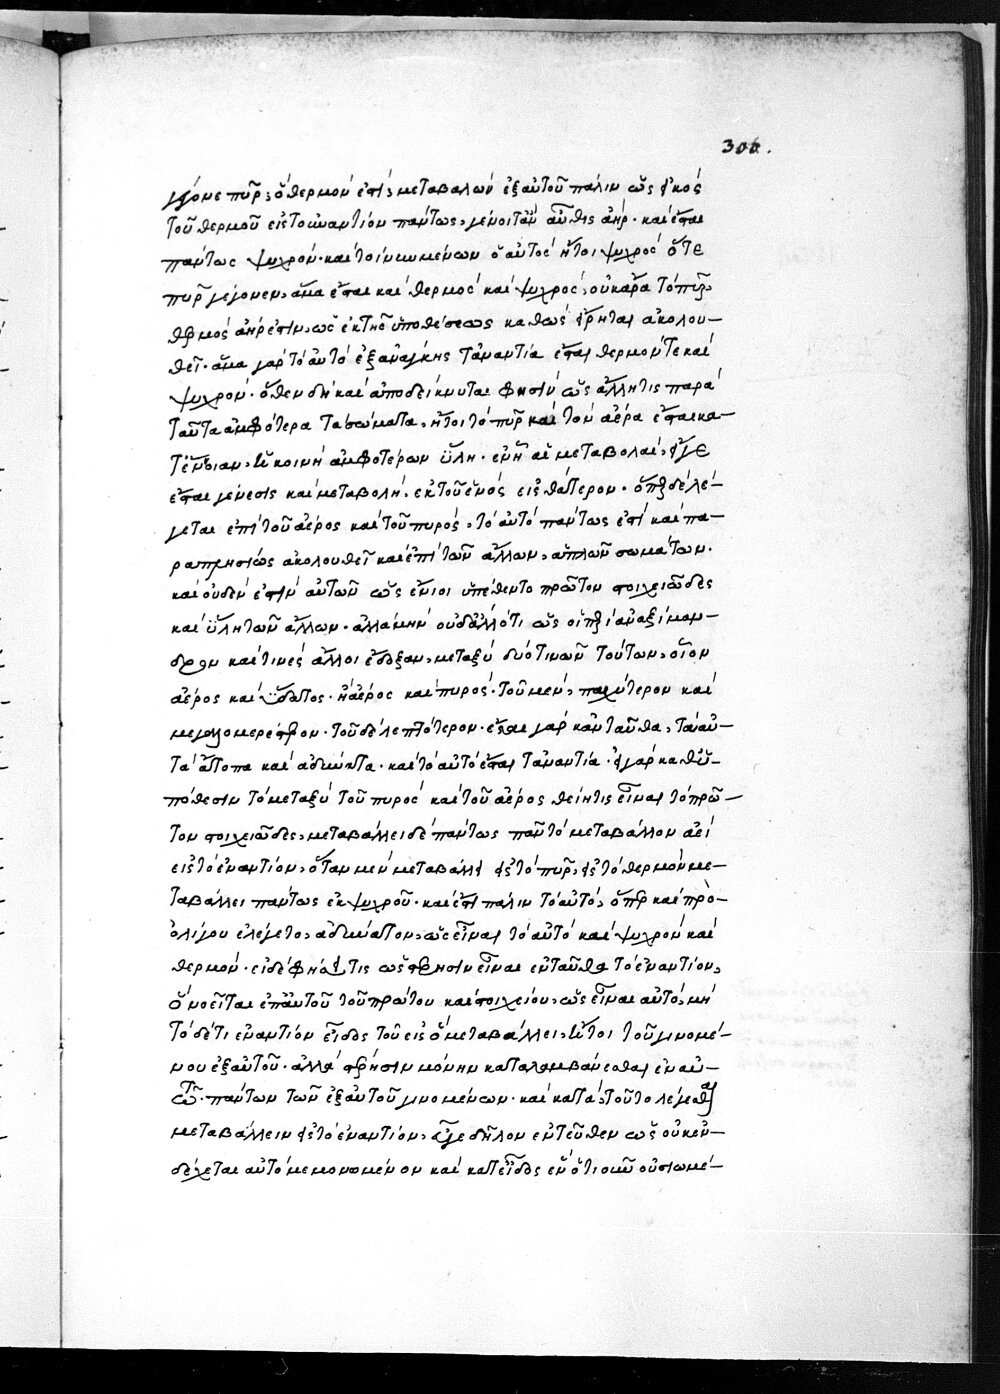 306.
γέγονε πῦρ, ὃ θερμόν ἐστι, μεταβαλὼν ἐξ αὐτοῦ πάλιν ὡς εἰκὸς
τοῦ θερμοῦ εἰς τὸ ἐναντίον πάντως, γένοιτ' ἂν αὖθις ἀήρ. καὶ ἔσται
πάντως ψυχρόν. καὶ τοίνυν μένων ὁ αὐτὸς ἤτοι ψυχρὸς ὅτε
πῦρ γέγονεν, ἅμα ἔσται καὶ θερμὸς καὶ ψυχρός, οὐκ ἄρα τὸ πῦρ,
θερμὸς ἀήρ ἐστιν, ὡς ἐκ τῆς ὑποθέσεως καθὼς εἴρηται ἀκολου–
θεῖ. ἅμα γὰρ τὸ αὐτὸ ἐξ ἀνάγκης τἀναντία ἔσται θερμόν τε καὶ
ψυχρόν. ὅθεν δὴ καὶ ἀποδείκνυται φησὶν ὡς ἄλλη τις παρὰ
ταῦτα ἀμφότερα τὰ σώματα, ἤτοι τὸ πῦρ καὶ τὸν ἀέρα ἔσται κα–
τ' οὐσίαν, ἡ κοινὴ ἀμφοτέρων ὕλη. ἐν ᾗ αἱ μεταβολαί, εἴγε
ἔσται γένεσις καὶ μεταβολὴ, ἐκ τοῦ ἑνὸς εἰς θάτερον. ὅπερ δὲ λέ–
γεται ἐπὶ τοῦ ἀέρος καὶ τοῦ πυρός, τὸ αὐτὸ πάντως ἐστὶ καὶ πα–
ραπλησίως ἀκολουθεῖ καὶ ἐπὶ τῶν ἄλλων, ἁπλῶν σωμάτων.
καὶ οὐδέν ἐστιν αὐτῶν ὡς ἔνιοι ὑπέθεντο πρῶτον στοιχειῶδες
καὶ ὕλη τῶν ἄλλων. ἀλλὰ μὴν οὐδ' ἄλλό τι ὡς οἱ περὶ ἀναξίμαν–
δρον καὶ τινὲς ἄλλοι ἔδοξαν, μεταξὺ δυό τινων τούτων, οἷον
ἀέρος καὶ ὕδατος. ἢ ἀέρος καὶ πυρός. τοῦ μέν, παχύτερον καὶ
μεγαλομερέστερον. τοῦ δὲ λεπτότερον. ἔσται γὰρ κἀνταῦθα, τὰ αὐ–
τὰ ἄτοπα καὶ ἀδύνατα. καὶ τὸ αὐτὸ ἔσται τἀναντία. εἰ γὰρ καθ' ὑ–
πόθεσιν τὸ μεταξὺ τοῦ πυρὸς καὶ τοῦ ἀέρος θείη τις εἶναι τὸ πρῶ–
τον στοιχειῶδες, μεταβάλλει δὲ πάντως πᾶν τὸ μεταβάλλον ἀεὶ
εἰς τὸ ἐναντίον, ὅταν μὲν μεταβάλλῃ εἰς τὸ πῦρ, εἰς τὸ θερμὸν με–
ταβάλλει πάντως ἐκ ψυχροῦ. καὶ ἔστι πάλιν τὸ αὐτό, ὅπερ καὶ πρὸ–
ὀλίγου ἐλέγετο, ἀδύνατον, ὡς εἶναι τὸ αὐτὸ καὶ ψυχρὸν καὶ
θερμόν. εἰ δὲ φησί τις ὡς στέρησιν εἶναι ἐνταῦθα τὸ ἐναντίον,
ὃ νοεῖται ἐπ' αὐτοῦ τοῦ πρώτου καὶ στοιχείου, ὡς εἶναι αὐτό, μὴ
τόδέ τι ἐναντίον εἶδος τοῦ εἰς ὃ μεταβάλλει, ἤτοι τοῦ γινομέ–
νου ἐξ αὐτοῦ. ἀλλὰ στέρησιν μόνην καταλαμβάνεσθαι ἐν αὐ–
τῷ. πάντων τῶν ἐξ αὐτοῦ γινομένων. καὶ κατὰ τοῦτο λέγεσθαι
μεταβάλλειν εἰς τὸ ἐναντίον, ἀλλά γε δῆλον ἐντεῦθεν ὡς οὐκ ἐν–
δέχεται αὐτὸ μεμονωμένον καὶ κατ' εἶδος ἓν ὁτιοῦν οὐσιωμέ–